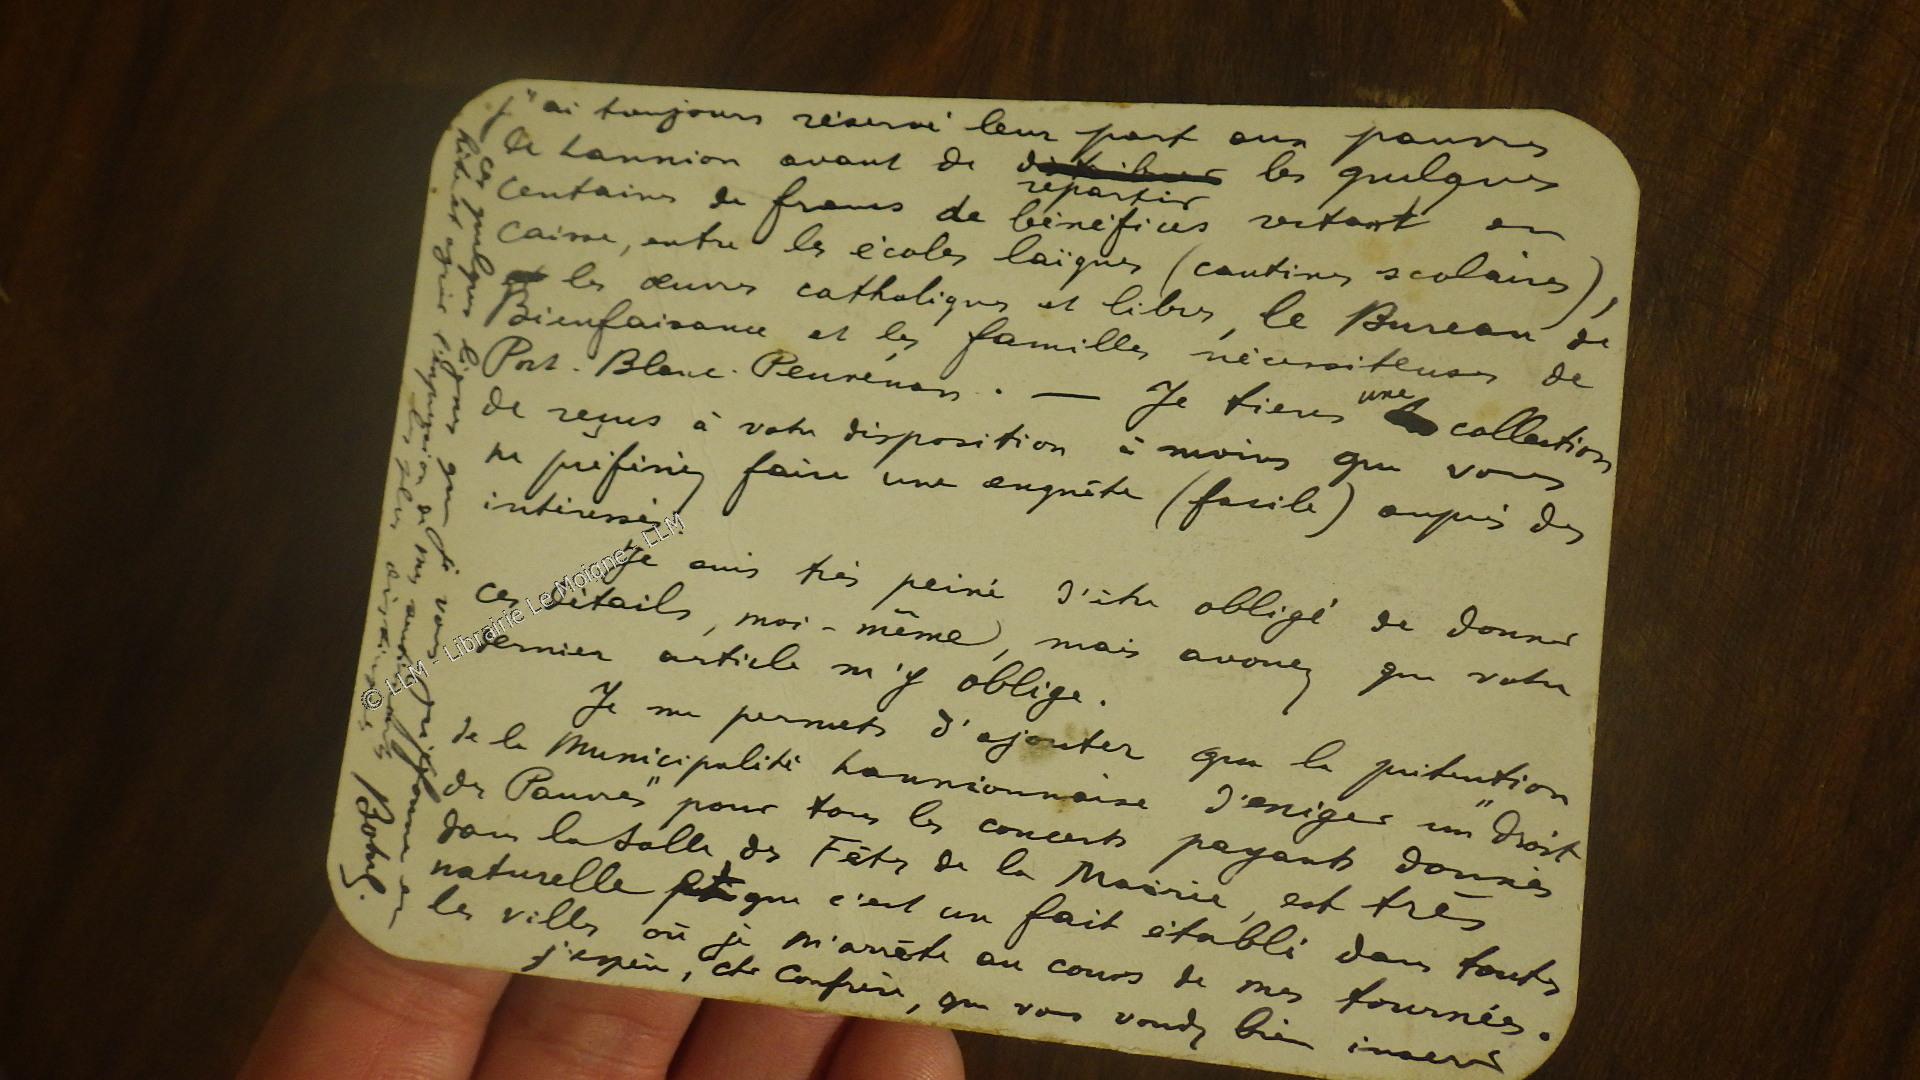 J'ai toujours réservé leur part aux pauvres
de Lannion avant de distribuer les quelques
répartir
centaines de francs de bénéfices restant en
caisse, entre les écoles laïques (cantines scolaires),
et les œuvres catholiques et libres, le Bureau de
Bienfaisance et les familles nécessiteuses de
Port-Blanc-Penvénan. — Je tiens une collection
de reçus à votre disposition à moins que vous
ne préfériez faire une enquête (facile) auprès des
intéressés.
Je suis très peiné d'être obligé de donner
ces détails, moi-même, mais avouez que votre
dernier article m'y oblige.
Je me permets d'ajouter que la prétention
de la Municipalité Lannionnaise d'exiger un "Droit
des Pauvres" pour tous les concerts payants donnés
dans la Salle des Fêtes de la Mairie, est très
naturelle et que c'est un fait établi dans toutes
les villes où je m'arrête au cours de mes tournées.
J'espère, cher Confrère, que vous voudrez bien insérer
ces quelques lignes que je vous
et agréer l'expression de mes
les plus
Botrel.
© LLM - Librairie Le Moigne - LLM